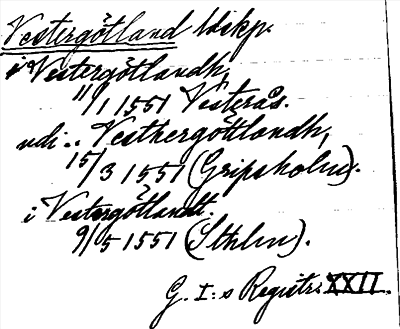 Vestergötland ldskp.
i Vestergötlandh,
11/1 1551 Västerås.
udi .. Vesthergöttlandh,
15/3 1551 (Gripsholm).
i Vestergötlandt.
9/5 1551 (Sthlm).
G. I:s Registr. XXII.